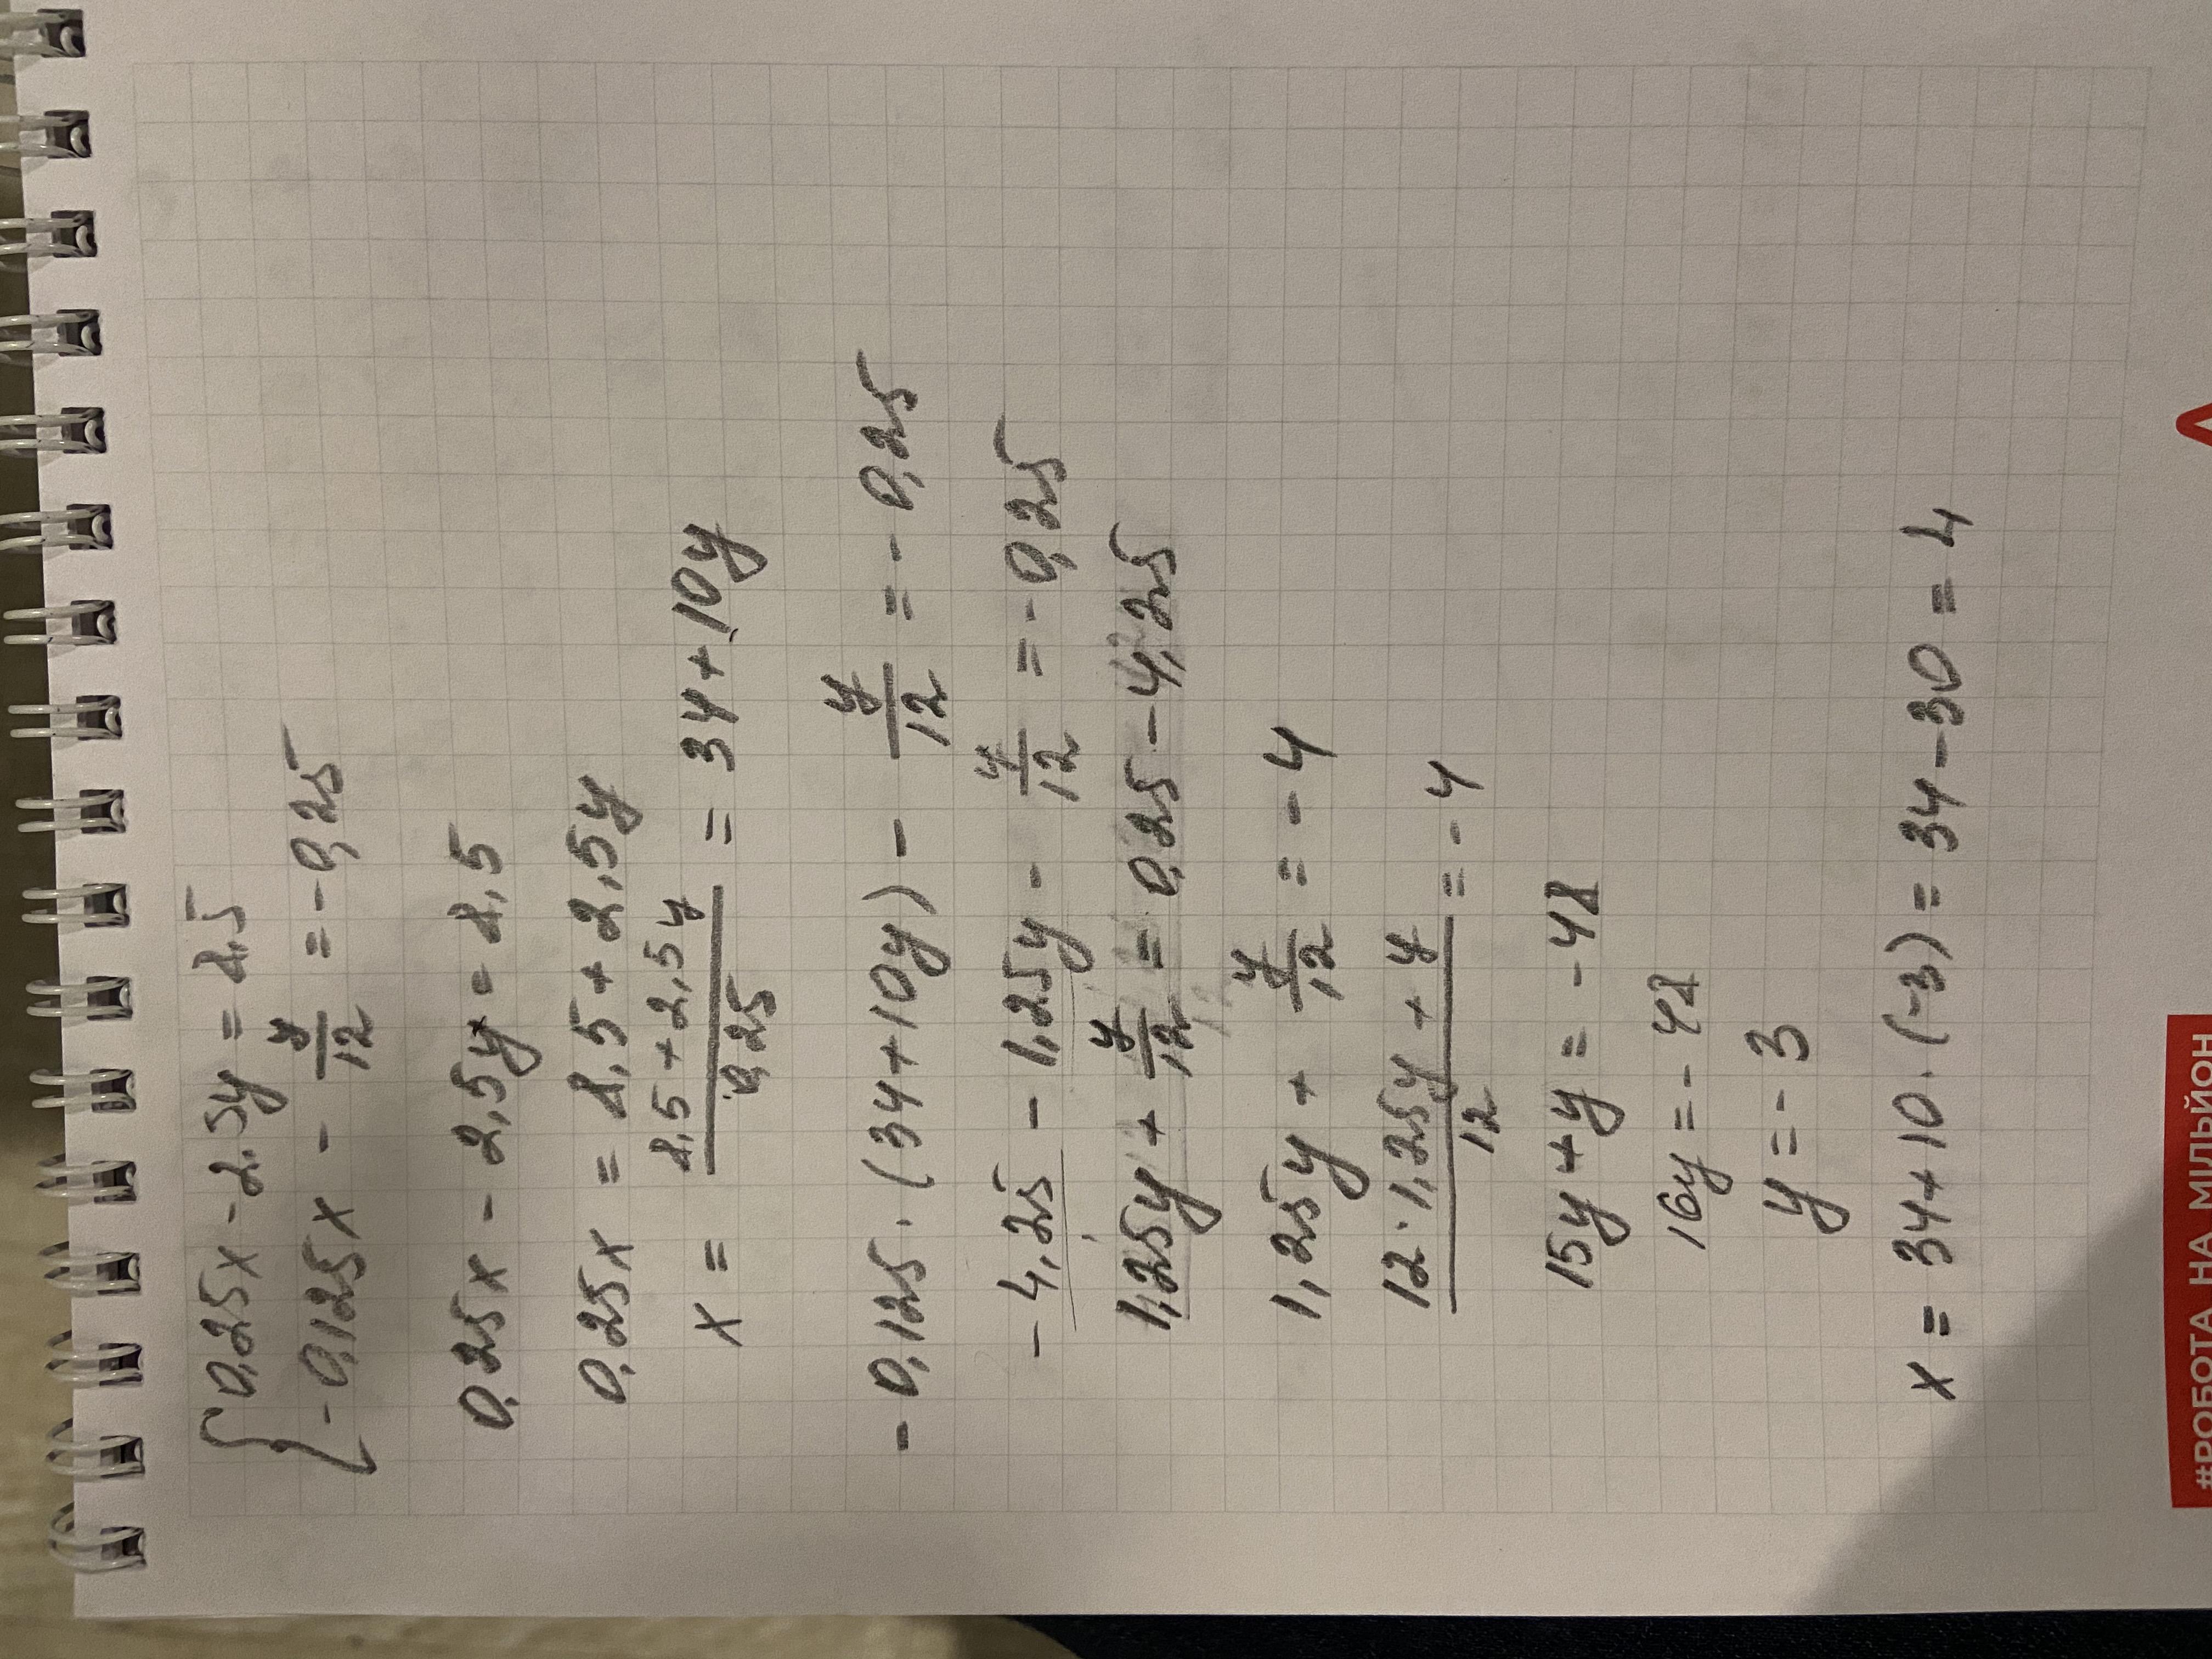 { 0,25x - 2,5y = 8,5
- 0,125x - y/12 = - 0,25
0,25x - 2,5y = 8,5
0,25x = 8,5 + 2,5y
x = (8,5 + 2,5y)/0,25 = 34 + 10y
- 0,125 · (34 + 10y) - y/12 = - 0,25
- 4,25 - 1,25y - y/12 = - 0,25
1,25y + y/12 = 0,25 - 4,25
1,25y + y/12 = - 4
(12 · 1,25y + y)/12 = - 4
15y + y = - 48
16y = - 48
y = - 3
x = 34 + 10 · (-3) = 34 - 30 = 4
#РОБОТА НА МІЛЬЙОН